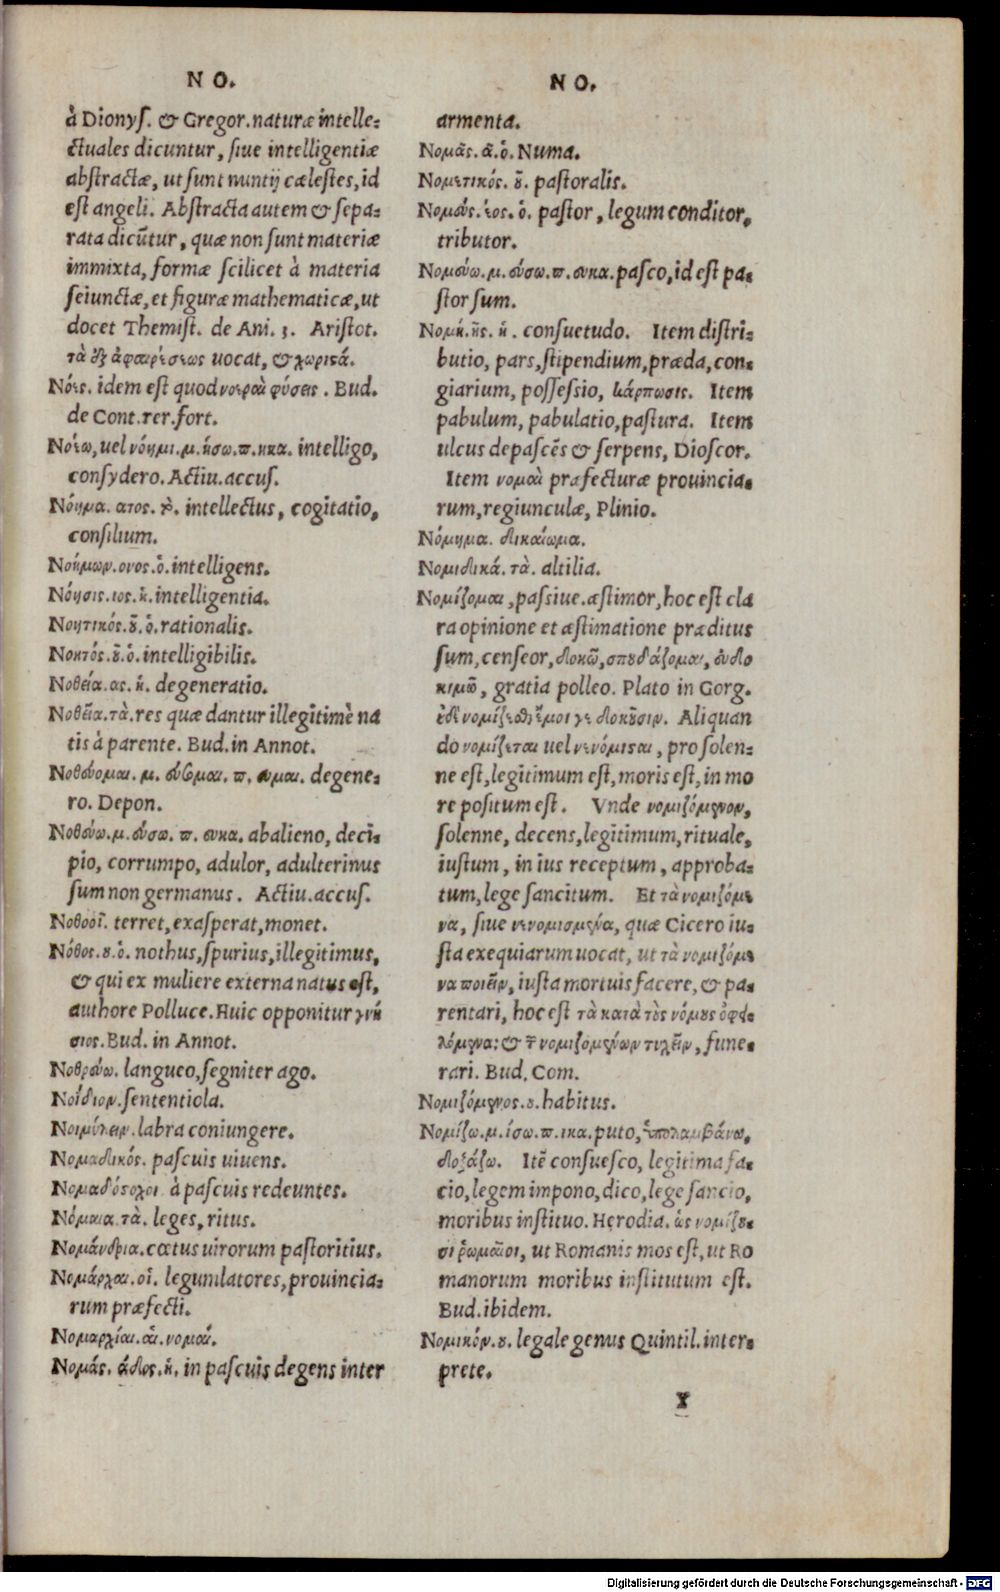 NO.
à Dionys. & Gregor. naturæ intelle-
ctuales dicuntur, siue intelligentiæ
abstractæ, ut sunt nuntij cælestes, id
est angeli. Abstracta autem & sepa-
rata dicūtur, quæ non sunt materiæ
immixta, formæ scilicet à materia
seiunctæ, et figuræ mathematicæ, ut
docet Themist. de Ani. 3. Aristot.
τὰ ἐξ ἀφαιρέσεως uocat, & χωρικά.
Νόες. idem est quod νοεραὶ φύσεις. Bud.
de Cont. rer. fort.
Νοέω, uel νόημι. μ. ήσω. π. ηκα. intelligo,
consydero. Actiu. accus.
Νόημα. ατος. τὸ. intellectus, cogitatio,
consilium.
Νοήμων. ονος. ὁ. intelligens.
Νόησις. ιος. ἡ. intelligentia.
Νοητικός. οῦ. ὁ. rationalis.
Νοητός. οῦ. ὁ. intelligibilis.
Νοθεία. ας. ἡ. degeneratio.
Νοθεῖα. τὰ. res quæ dantur illegitimè na
tis à parente. Bud. in Annot.
Νοθεύομαι. μ. εύσομαι. π. ευμαι. degene-
ro. Depon.
Νοθεύω. μ. εύσω. π. ευκα. abalieno, deci-
pio, corrumpo, adulor, adulterinus
sum non germanus. Actiu. accus.
Νοθοοῖ. terret, exasperat, monet.
Νόθος. ου. ὁ. nothus, spurius, illegitimus,
& qui ex muliere externa natus est,
authore Polluce. Huic opponitur γνή
σιος. Bud. in Annot.
Νοθρεύω. langueo, segniter ago.
Νοΐδιον. sententiola.
Νοιμύλειν. labra coniungere.
Νομαδικός. pascuis uiuens.
Νομαδόσοχοι à pascuis redeuntes.
Νόμαια. τὰ. leges, ritus.
Νομάνδρια. cœtus uirorum pastoritius.
Νομάρχαι. οἱ. legumlatores, prouincia-
rum præfecti.
Νομαρχίαι. αἱ. νομαί.
Νομάς. άδος. ἡ. in pascuis degens inter
NO.
armenta.
Νομᾶς. ᾶ. ὁ. Numa.
Νομετικός. οῦ. pastoralis.
Νομεύς. έος. ὁ. pastor, legum conditor,
tributor.
Νομεύω. μ. εύσω. π. ευκα. pasco, id est pa-
stor sum.
Νομή. ῆς. ἡ. consuetudo. Item distri-
butio, pars, stipendium, præda, con-
giarium, possessio, κάρπωσις. Item
pabulum, pabulatio, pastura. Item
ulcus depascēs & serpens, Dioscor.
Item νομαὶ præfecturæ prouincia-
rum, regiunculæ, Plinio.
Νόμημα. δικαίωμα.
Νομιδικά. τὰ. altilia.
Νομίζομαι, passiue. æstimor, hoc est cla
ra opinione et æstimatione præditus
sum, censeor, δοκῶ, σπουδάζομαι, ευδο
κιμῶ, gratia polleo. Plato in Gorg.
ἐδὲ νομίζεσθαι ἔμοιγε δοκοῦσιν. Aliquan
do νομίζεται uel νενόμισαι, pro solen-
ne est, legitimum est, moris est, in mo
re positum est. Vnde νομιζόμενον,
solenne, decens, legitimum, rituale,
iustum, in ius receptum, approba-
tum, lege sancitum. Et τὰ νομιζόμε
να, siue νενομισμένα, quæ Cicero iu-
sta exequiarum uocat, ut τὰ νομιζόμε
να ποιεῖν, iusta mortuis facere, & pa-
rentari, hoc est τὰ κατὰ τοὺς νόμους ὀφει
λόμενα: & τῶν νομιζομένων τυχεῖν, fune-
rari. Bud. Com.
Νομιζόμενος. ου. habitus.
Νομίζω. μ. ίσω. π. ικα. puto, ὑπολαμβάνω,
δοξάζω. Itē consuesco, legitima fa-
cio, legem impono, dico, lege sancio,
moribus instituo. Herodia. ὡς νομίζου-
σι ῥωμαῖοι, ut Romanis mos est, ut Ro
manorum moribus institutum est.
Bud. ibidem.
Νομικόν. ου. legale genus Quintil. inter-
prete.
Y
Digitalisierung gefördert durch die Deutsche Forschungsgemeinschaft - DFG